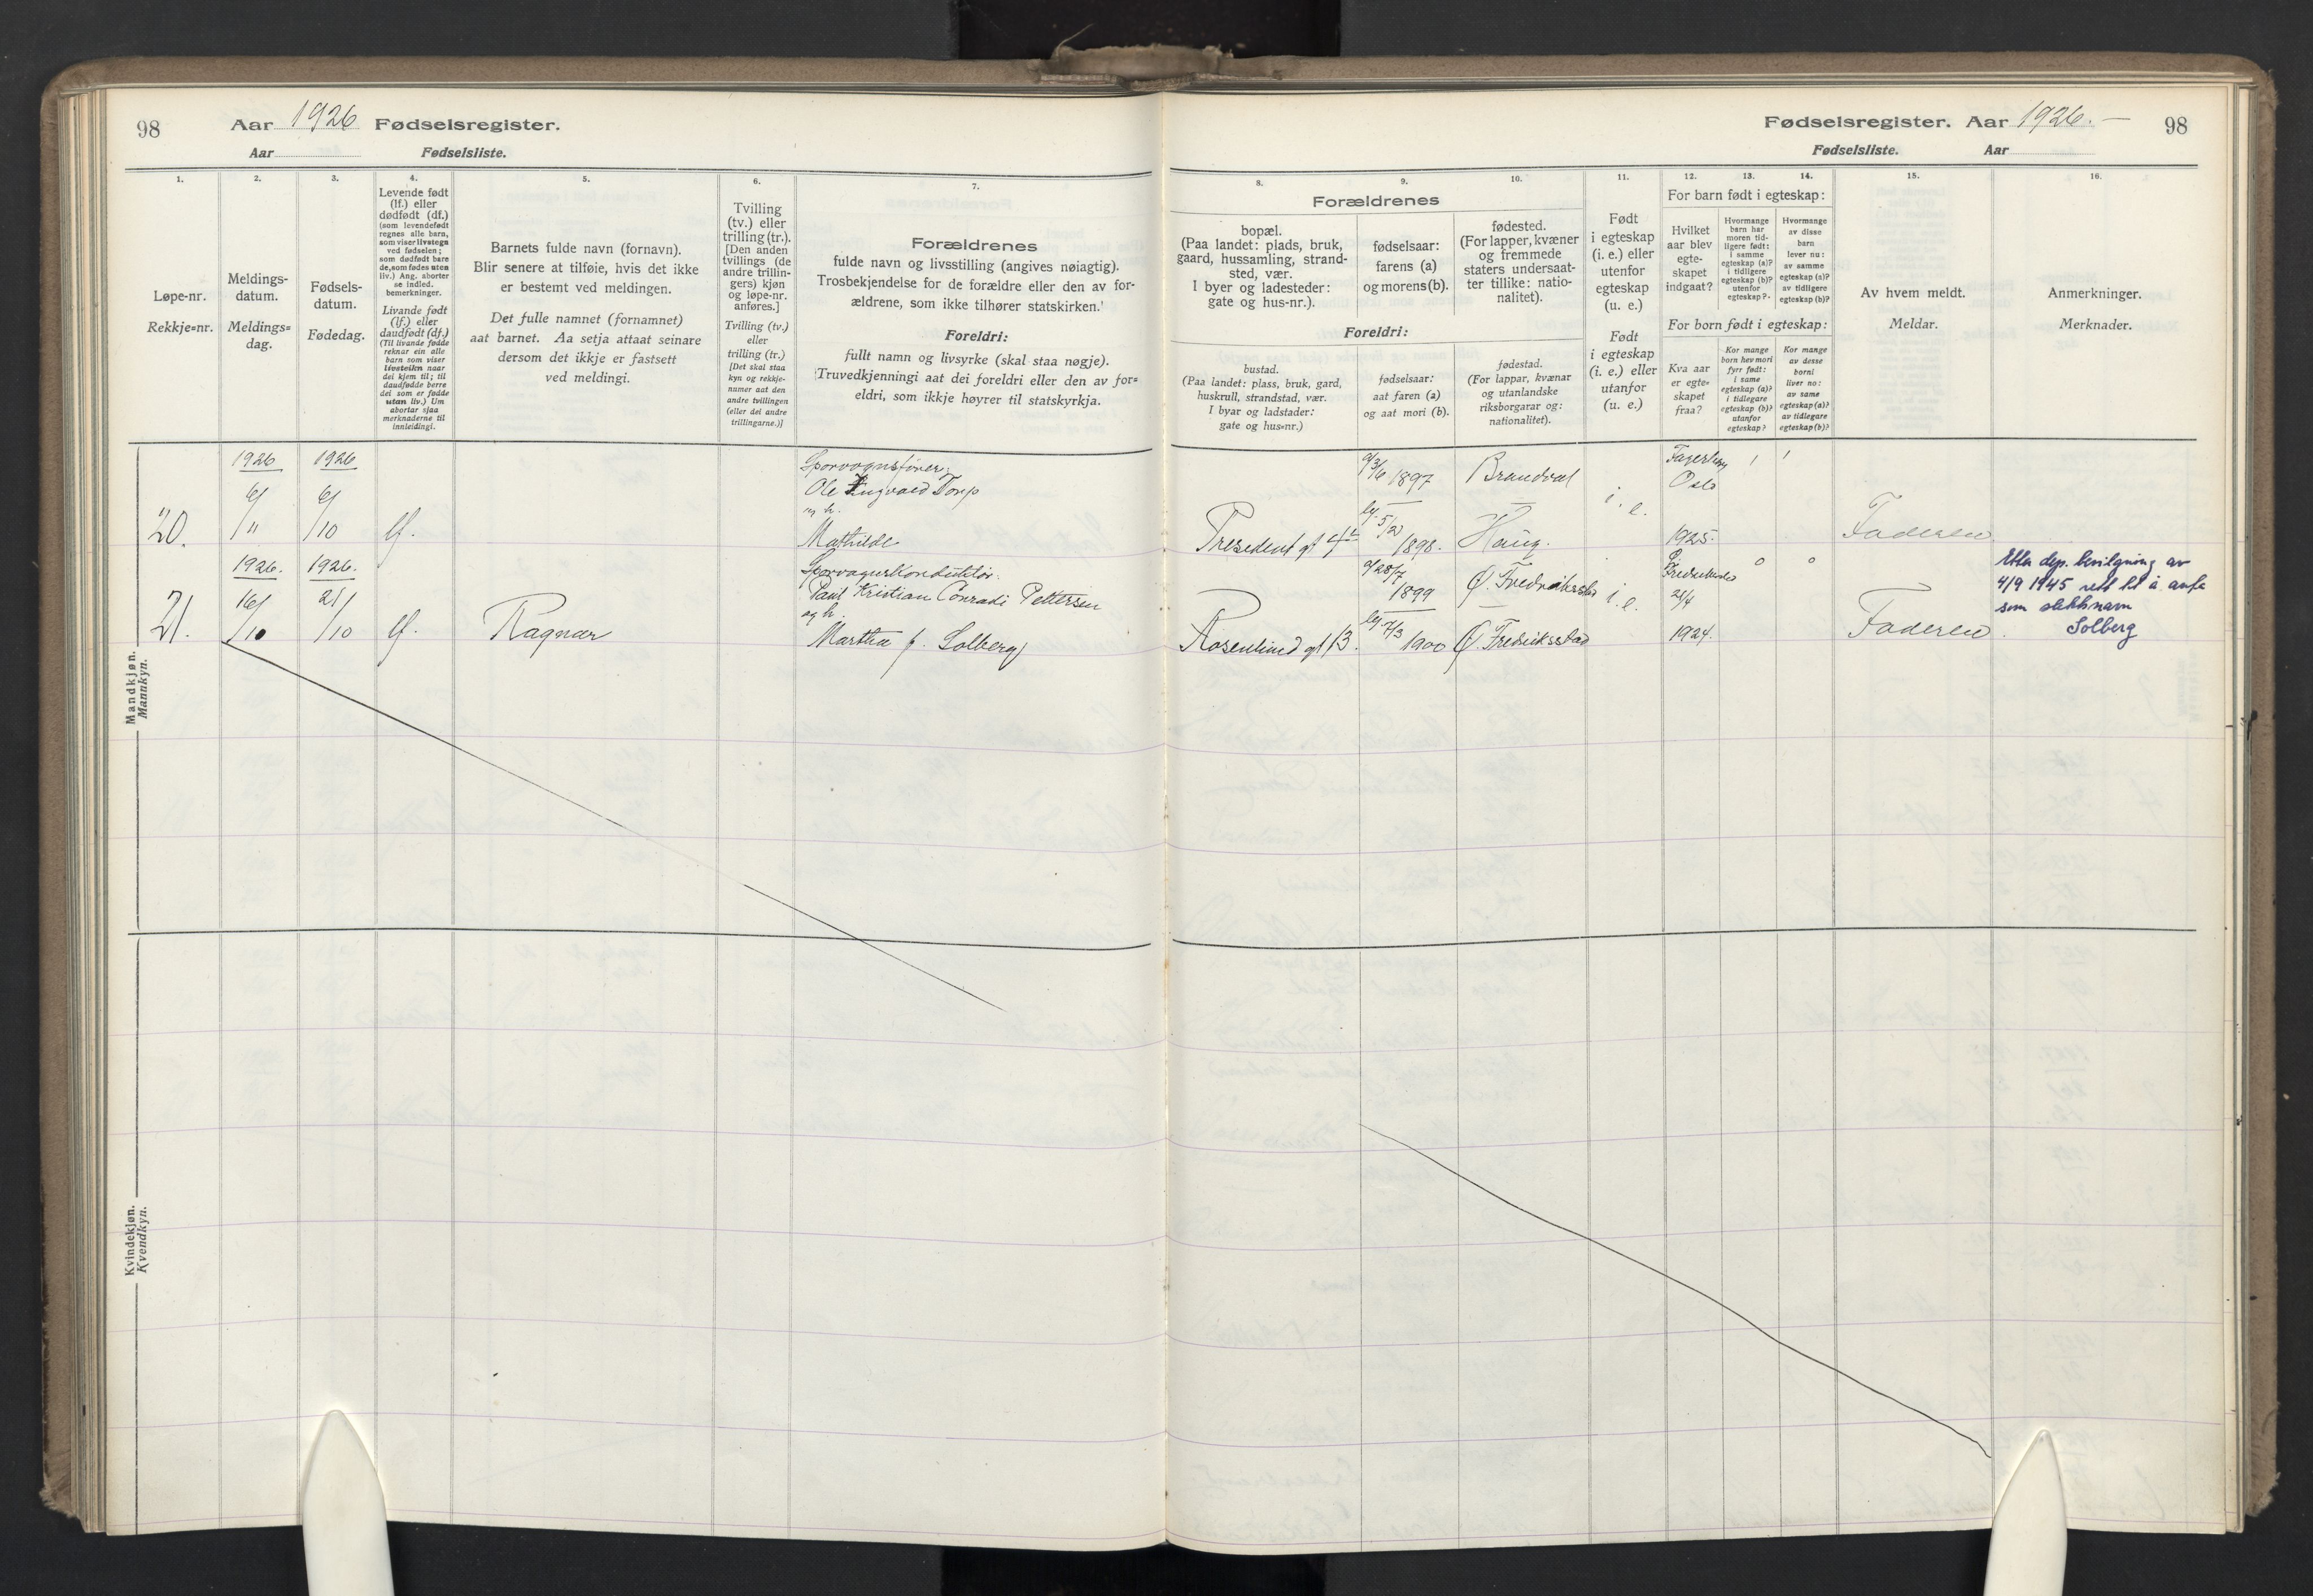 98
Aar 1926 Fødselsregister.
Aar Fødselsliste.
1.
Løpe-nr.
Rekkje=nr.
2.
Meldings-
datum.
Meldings=
dag.
3.
Fødsels-
datum.
Fødedag.
4.
Levende født
(lf.) eller
dødfødt (df.)
(som levendefødt
regnes alle barn,
som viser livstegn
ved fødselen;
som dødfødt bare
de, som fødes uten
liv.) Ang. aborter
se indled.
bemerkninger.
Livande født
(lf.) eller
daudfødt (df.)
(Til livande fødde
reknar ein alle
barn som viser
livsteikn naar
dei kjem til; til
daudfødde berre
dei som er fødde
utan liv.) Um
abortar sjaa
merknaderne til
innleidingi.
5.
Barnets fulde navn (fornavn).
Blir senere at tilføie, hvis det ikke
er bestemt ved meldingen.
Det fulle namnet (fornamnet)
aat barnet. Aa setja attaat seinare
dersom det ikkje er fastsett
ved meldingi.
6.
Tvilling
(tv.) eller
trilling (tr.).
[Den anden
tvillings (de
andre trillin-
gers) kjøn
og løpe-nr.
anføres.]
Tvilling (tv.)
eller
trilling (tr.)
[Det skal staa
kyn og rekkje-
numer aat den
andre tvillingen
(eller dei andre
trillingarne.)]
7.
Forældrenes
fulde navn og livsstilling (angives nøiagtig).
Trosbekjendelse for de forældre eller den av for-
ældrene, som ikke tilhører statskirken.
Foreldri:
fullt namn og livsyrke (skal staa nøgje).
Truvedkjenningi aat dei foreldri eller den av for=
eldri, som ikkje høyrer til statskyrkja.
Fødselsregister. Aar 1926.—
98
Fødselsliste. Aar
Forældrenes
8.
bopæl.
(Paa landet: plads, bruk,
gaard, hussamling, strand-
sted, vær.
I byer og ladesteder:
gate og hus-nr.).
9.
fødselsaar:
farens (a)
og morens (b).
10.
fødested.
(For lapper, kvæner
og fremmede
staters undersaat-
ter tillike: natio-
nalitet).
Foreldri:
bustad.
(Paa landet: plass, bruk, gard,
huskrull, strandstad, vær.
I byar og ladstader:
gate og hus=nr.)
fødselsaar:
aat faren (a)
og aat mori (b).
fødestad.
(For lappar, kvænar
og utanlandske
riksborgarar og:
nationalitet).
11.
Født
i egteskap
(i. e.) eller
utenfor
egteskap
(u. e.)
Født
i egteskap
(i. e.) eller
utanfor
egteskap
(u. e.)
For barn født i egteskap:
12.
Hvilket
aar blev
egte-
skapet
indgaat?
13.
Hvormange
barn har
moren tid-
ligere født:
i samme
egteskap (a)?
i tidligere
egteskap (b)?
utenfor
egteskap?
14.
Hvormange
av disse
barn
lever nu:
av samme
egteskap (a)?
av tidligere
egteskap (b)?
For born født i egteskap:
Kva aar
er egte=
skapet
fraa?
Kor mange
born hev mori
fyrr født:
i same
egteskap (a)?
i tidlegare
egteskap (b)?
utanfor
egteskap?
Kor mange
av desse
borni
liver no:
av same
egteskap (a)?
av tidlegare
egteskap (b)?
15.
Av hvem meldt.
Meldar.
16.
Anmerkninger.
Merknader.
Mandkjøn.
Mannkyn.
20.
1926 6/11
1926 6/10
lf.
Sporvognsfører
Ole Ingvald Torp
og h.
Mathilde
President gt 4
a/ 3/6 1897
b/ 5/2 1898.
Brandval
Haug.
i. e.
Fagerborg
Oslo
1925.
1
1
Faderen
21.
1926. 16/10
1926. 21/10
lf.
Ragnar
Sporvognskonduktør
Paul Kristian Conradi Pettersen
og h.
Martha f. Solberg
Rosenlund gt 13.
a/ 28/7 1899
b/ 7/3 1900
Ø. Fredrikstad
Ø. Fredriksstad
i. e.
Fredrikstad
1924.
0
0
Faderen.
Etter dep. bevilgning av
4/9 1945 rett til å anta
som slektsnavn
Solberg
Kvindekjøn.
Kvendkyn.